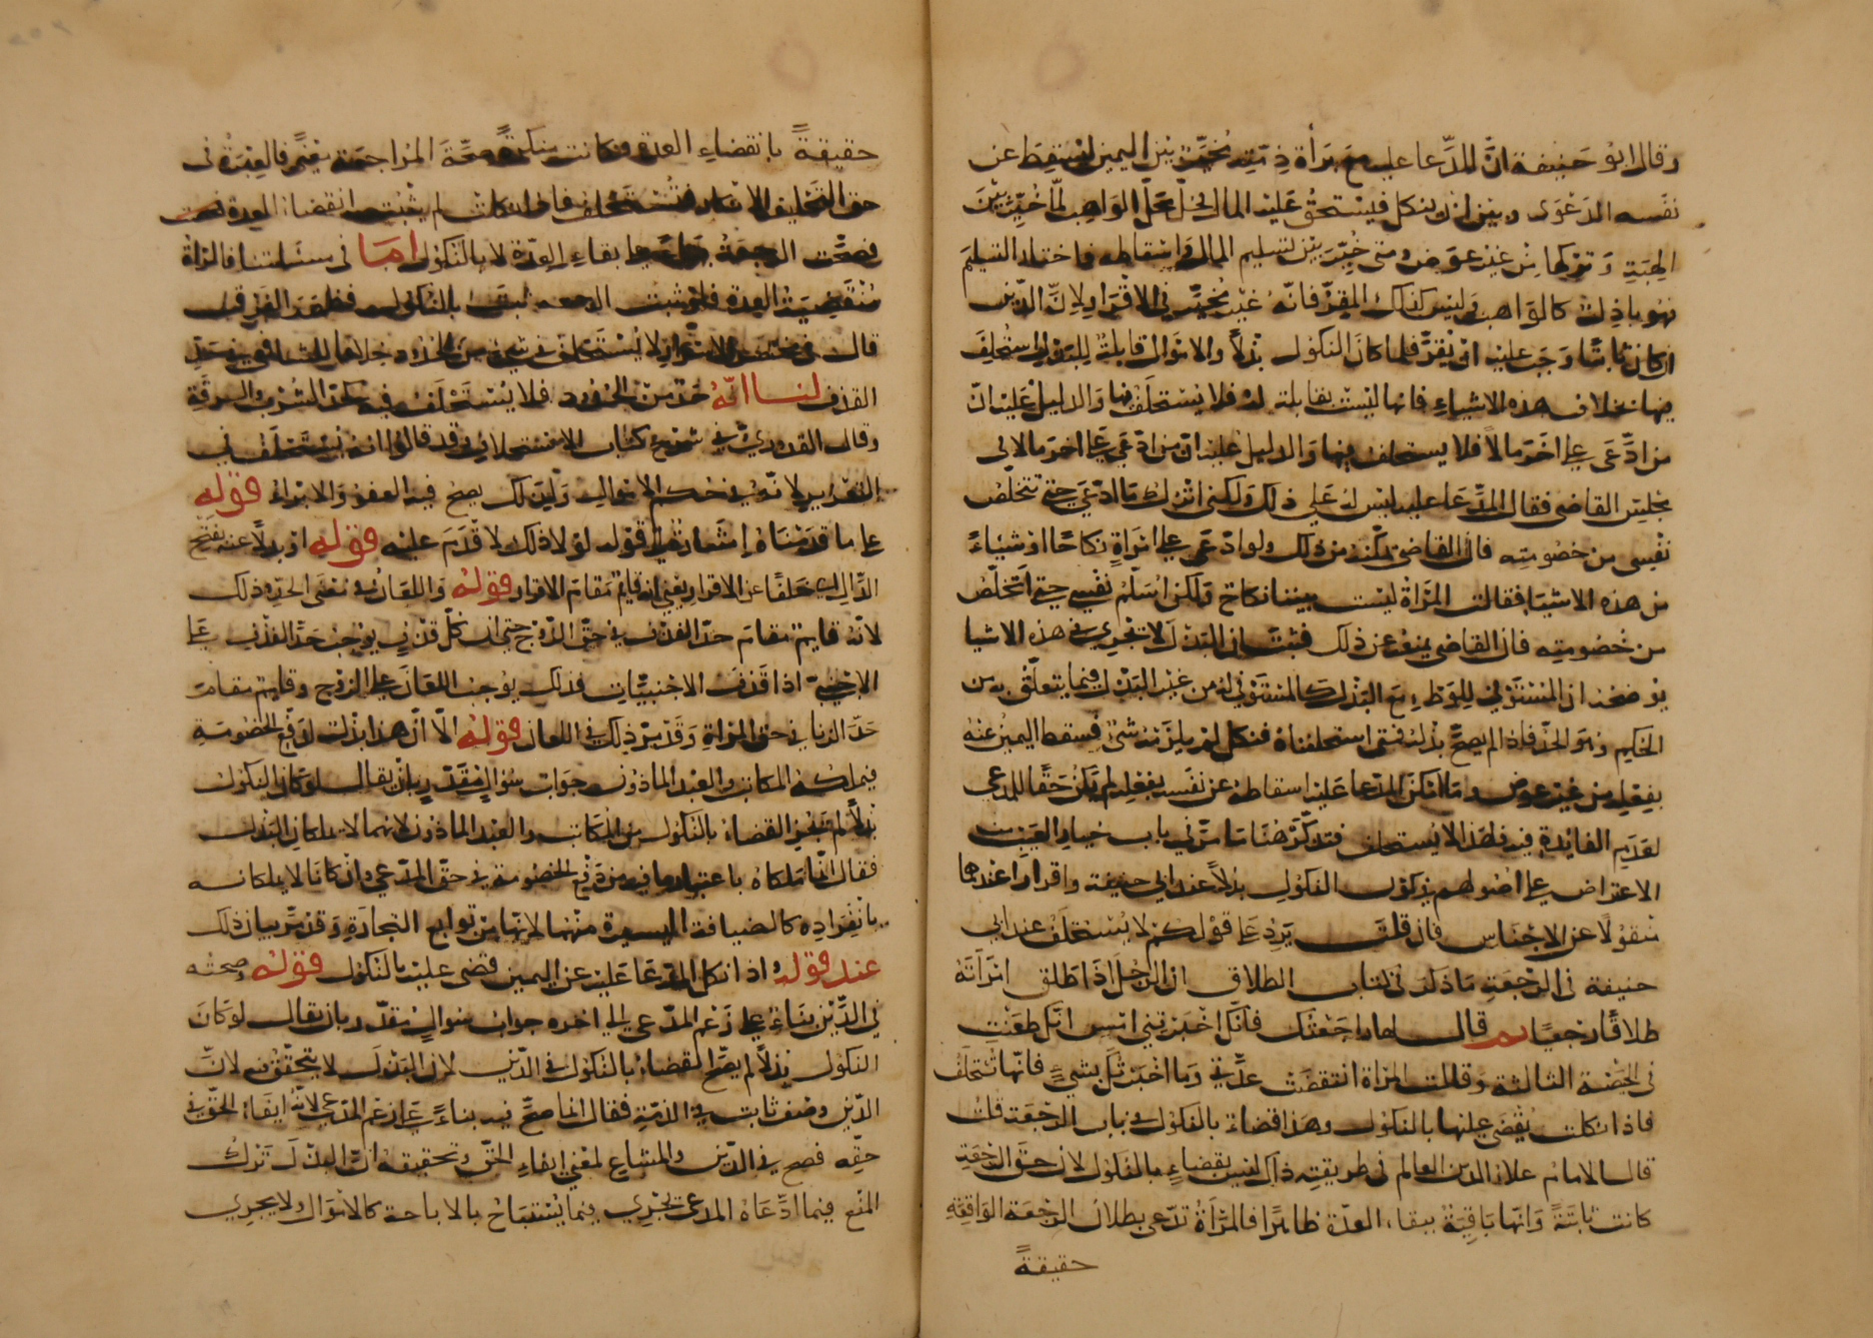 وقال ابو حنيفة ان المدعا عليه مع براة ذمته يخير بين اليمين ليسقط عن
نفسه الدعوى وبين ان ينكل فيستحق عليه المال فحل محل الواهب لما خير بين
الهبة وتركها من غير عوض ومتى خير بين تسليم المال واسقاطه فاختار التسليم
فهو باذل كالواهب وليس كذلك المقر فانه غير مخير في الاقرار لان الدين
ان كان ثابتا وجب عليه ان يقر فلما كان النكول بذلا والاموال قابلة للبذل استحلف
فيها بخلاف هذه الاشياء فانها ليست بقابلة له فلا يستحلف فيها والدليل عليه ان
من ادعى على اخر مالا فلا يستحلف فيها والدليل عليه ان من ادعى على اخر مالا في
مجلس القاضي فقال المدعا عليه ليس له علي ذلك ولكني اترك ما ادعى حتى تتخلص
نفسي من خصومته فان القاضي يمكنه من ذلك ولو ادعى على امراة نكاحا او شيئا
من هذه الاشيا فقالت المراة ليست بيننا نكاح ولكن اسلم نفسي حتى اتخلص
من خصومته فان القاضي يمنعه عن ذلك فثبت ان البذل لا تجري في هذه الاشيا
يوضحه ان المستوفي للوطء مع البذل كالمستوفي له من غير البذل فيما يتعلق به من
الحكم وهو الحد فاذا لم يصح بذله فمتى استحلفناه فنكل لم يلزمه شئ فسقط اليمين عنه
بفعله من غير عوض وما امكن المدعا عليه اسقاطه عن نفسه بفعله لم يكن حقا للمدعي
لعدم الفائدة فيه فلهذا لا يستحلف فتذكر هنا ما مر في باب خيار العيب من
الاعتراض على اصولهم بكون النكول بذلا عند ابي حنيفة واقرارا عندهما
منقولا عن الاجناس فان قلت يرد على قولكم لا يستحلف عند ابي
حنيفة في الرجعة ما ذكر في كتاب الطلاق ان الرجل اذا طلق امراته
طلاقا رجعيا ثم قال لها راجعتك فانك اخبرتني امس انك طعنت
في الحيضة الثالثة وقالت المراة انقضت عدتي وما اخبرتك بشئ فانها تحلف
فاذا نكلت يقضى عليها بالنكول وهذا قضاء بالنكول في باب الرجعة قلت
قال الامام علاء الدين العالم في طريقته ذاك ليس بقضاء بالنكول لان حق الرجعة
كانت ثابتة وانها باقية ببقاء العدة ظاهرا فالمراة تدعي بطلان الرجعة الواقعة
حقيقة
حقيقة بانقضاء العدة وكانت منكرة صحة المراجعة معنى فالعبرة في
حق التحليف للانكار فتستحلف فاذا نكلت لم يثبت انقضاء العدة
فصحت الرجعة بقاء العدة لا بالنكول اما في مسئلتنا فالمراة
منقضية العدة فلو ثبت الرجعة لثبت بالنكول فظهر الفرق
قال لا يستحلف في شئ من الحدود خلافا للشافعي في حد
القذف لنا انه حد من الحدود فلا يستحلف فيه كحد الشرب والسرقة
وقال القدوري في شرح كتاب الاستحلاف وقد قالوا انه يستحلف في
التعزير لانه في حكم الاموال وكذلك يصح فيه العفو والابراء قوله
على ما قدمناه اشعارة الى قوله لولا ذلك لا قدم عليه قوله او بدلا عنه بفتح
الدال اي خلفا عن الاقرار يعني انه قايم مقام الاقرار قوله واللعان في معنى الحد وذلك
لانه قايم مقام حد القذف في حق الزوج حتى ان كل قذف يوجب حد القذف على
الاجنبي اذا قذف الاجنبيات فذلك يوجب اللعان على الزوج وقايم مقام
حد الزنا في حق المراة وقد مر ذلك في اللعان قوله الا ان هذا بذل لدفع الخصومة
فيملكه المكاتب والعبد الماذون جواب سؤال مقدر بان يقال لو كان النكول
بذلا لم يجز القضاء بالنكول من المكاتب والعبد الماذون لانهما لا يملكان البذل
فقال انما ملكاه باعتبار ما فيه من دفع الخصومة في حق المدعي وان كانا لا يملكانه
بانفراده كالضيافة اليسيرة منهما لانها من توابع التجارة وقد مر بيان ذلك
عند قوله واذا نكل المدعا عليه عن اليمين قضى عليه بالنكول قوله وصحته
في الدين بناء على زعم المدعي الى اخره جواب سؤال مقدر بان يقال لو كان
النكول بذلا لم يصح القضاء بالنكول في الدين لان البذل لا يتحقق فيه لان
الدين وصف ثابت في الذمة فقال انما صح فيه بناء على زعم المدعي لانه ايفاء الحق في
حقه فصح في الدين والمشاع لمعنى ايفاء الحق وتحقيقه ان البذل ترك
المنع فيما ادعاه المدعي تجري فيما يستباح بالاباحة كالاموال ولا يجري